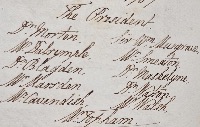 The President
Dr Morton Sir Wm Musgrave
Mr Dalrymple Mr Smeaton
Dr Blagden Dr Maskelyne
Mr Marsden Dr
Mr Cavendish Mr
Mr Topham.